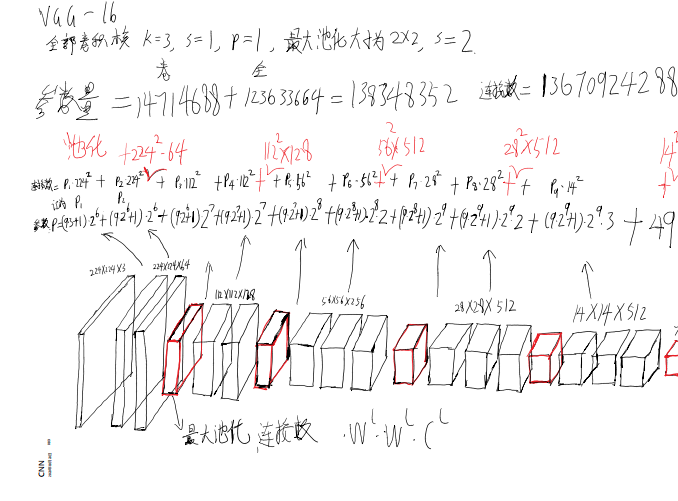 VGG-16
全部卷积核 K=3, S=1, P=1, 最大池化大小为 2×2, S=2
卷 全
参数量 = 14714688 + 123633664 = 138348352 连接数 = 13670924288
池化 +224²·64 112²×128 56²×512 28²×512 14²
连接数= P₁·224² + P₂·224² + P₃·112² + P₄·112² + P₅·56² + P₆·56² + P₇·28² + P₈·28² + P₉·14²
记为 P₁ P₂
参数 P=(9·3+1)·2⁶+(9·2⁶+1)·2⁶+(9·2⁶+1)·2⁷+(9·2⁷+1)·2⁷+(9·2⁷+1)·2⁸+(9·2⁸+1)·2⁸·2+(9·2⁸+1)·2⁹+(9·2⁹+1)·2⁹·2+(9·2⁹+1)·2⁹·3+49
224×224×3 224×224×64 112×112×128 56×56×256 28×28×512 14×14×512
最大池化 连接数 ·Wᴸ·Wᴸ·Cᴸ
CNN